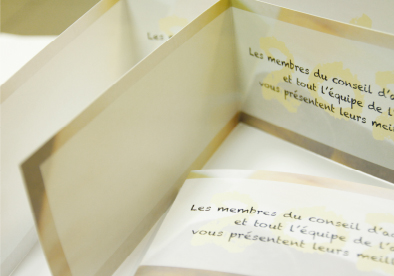 Les
Les membres du conseil d'a
et tout l'équipe de l'
vous présentent leurs meil
Les membres du conseil d'a
et tout l'équipe de l'a
vous présentent leurs meill